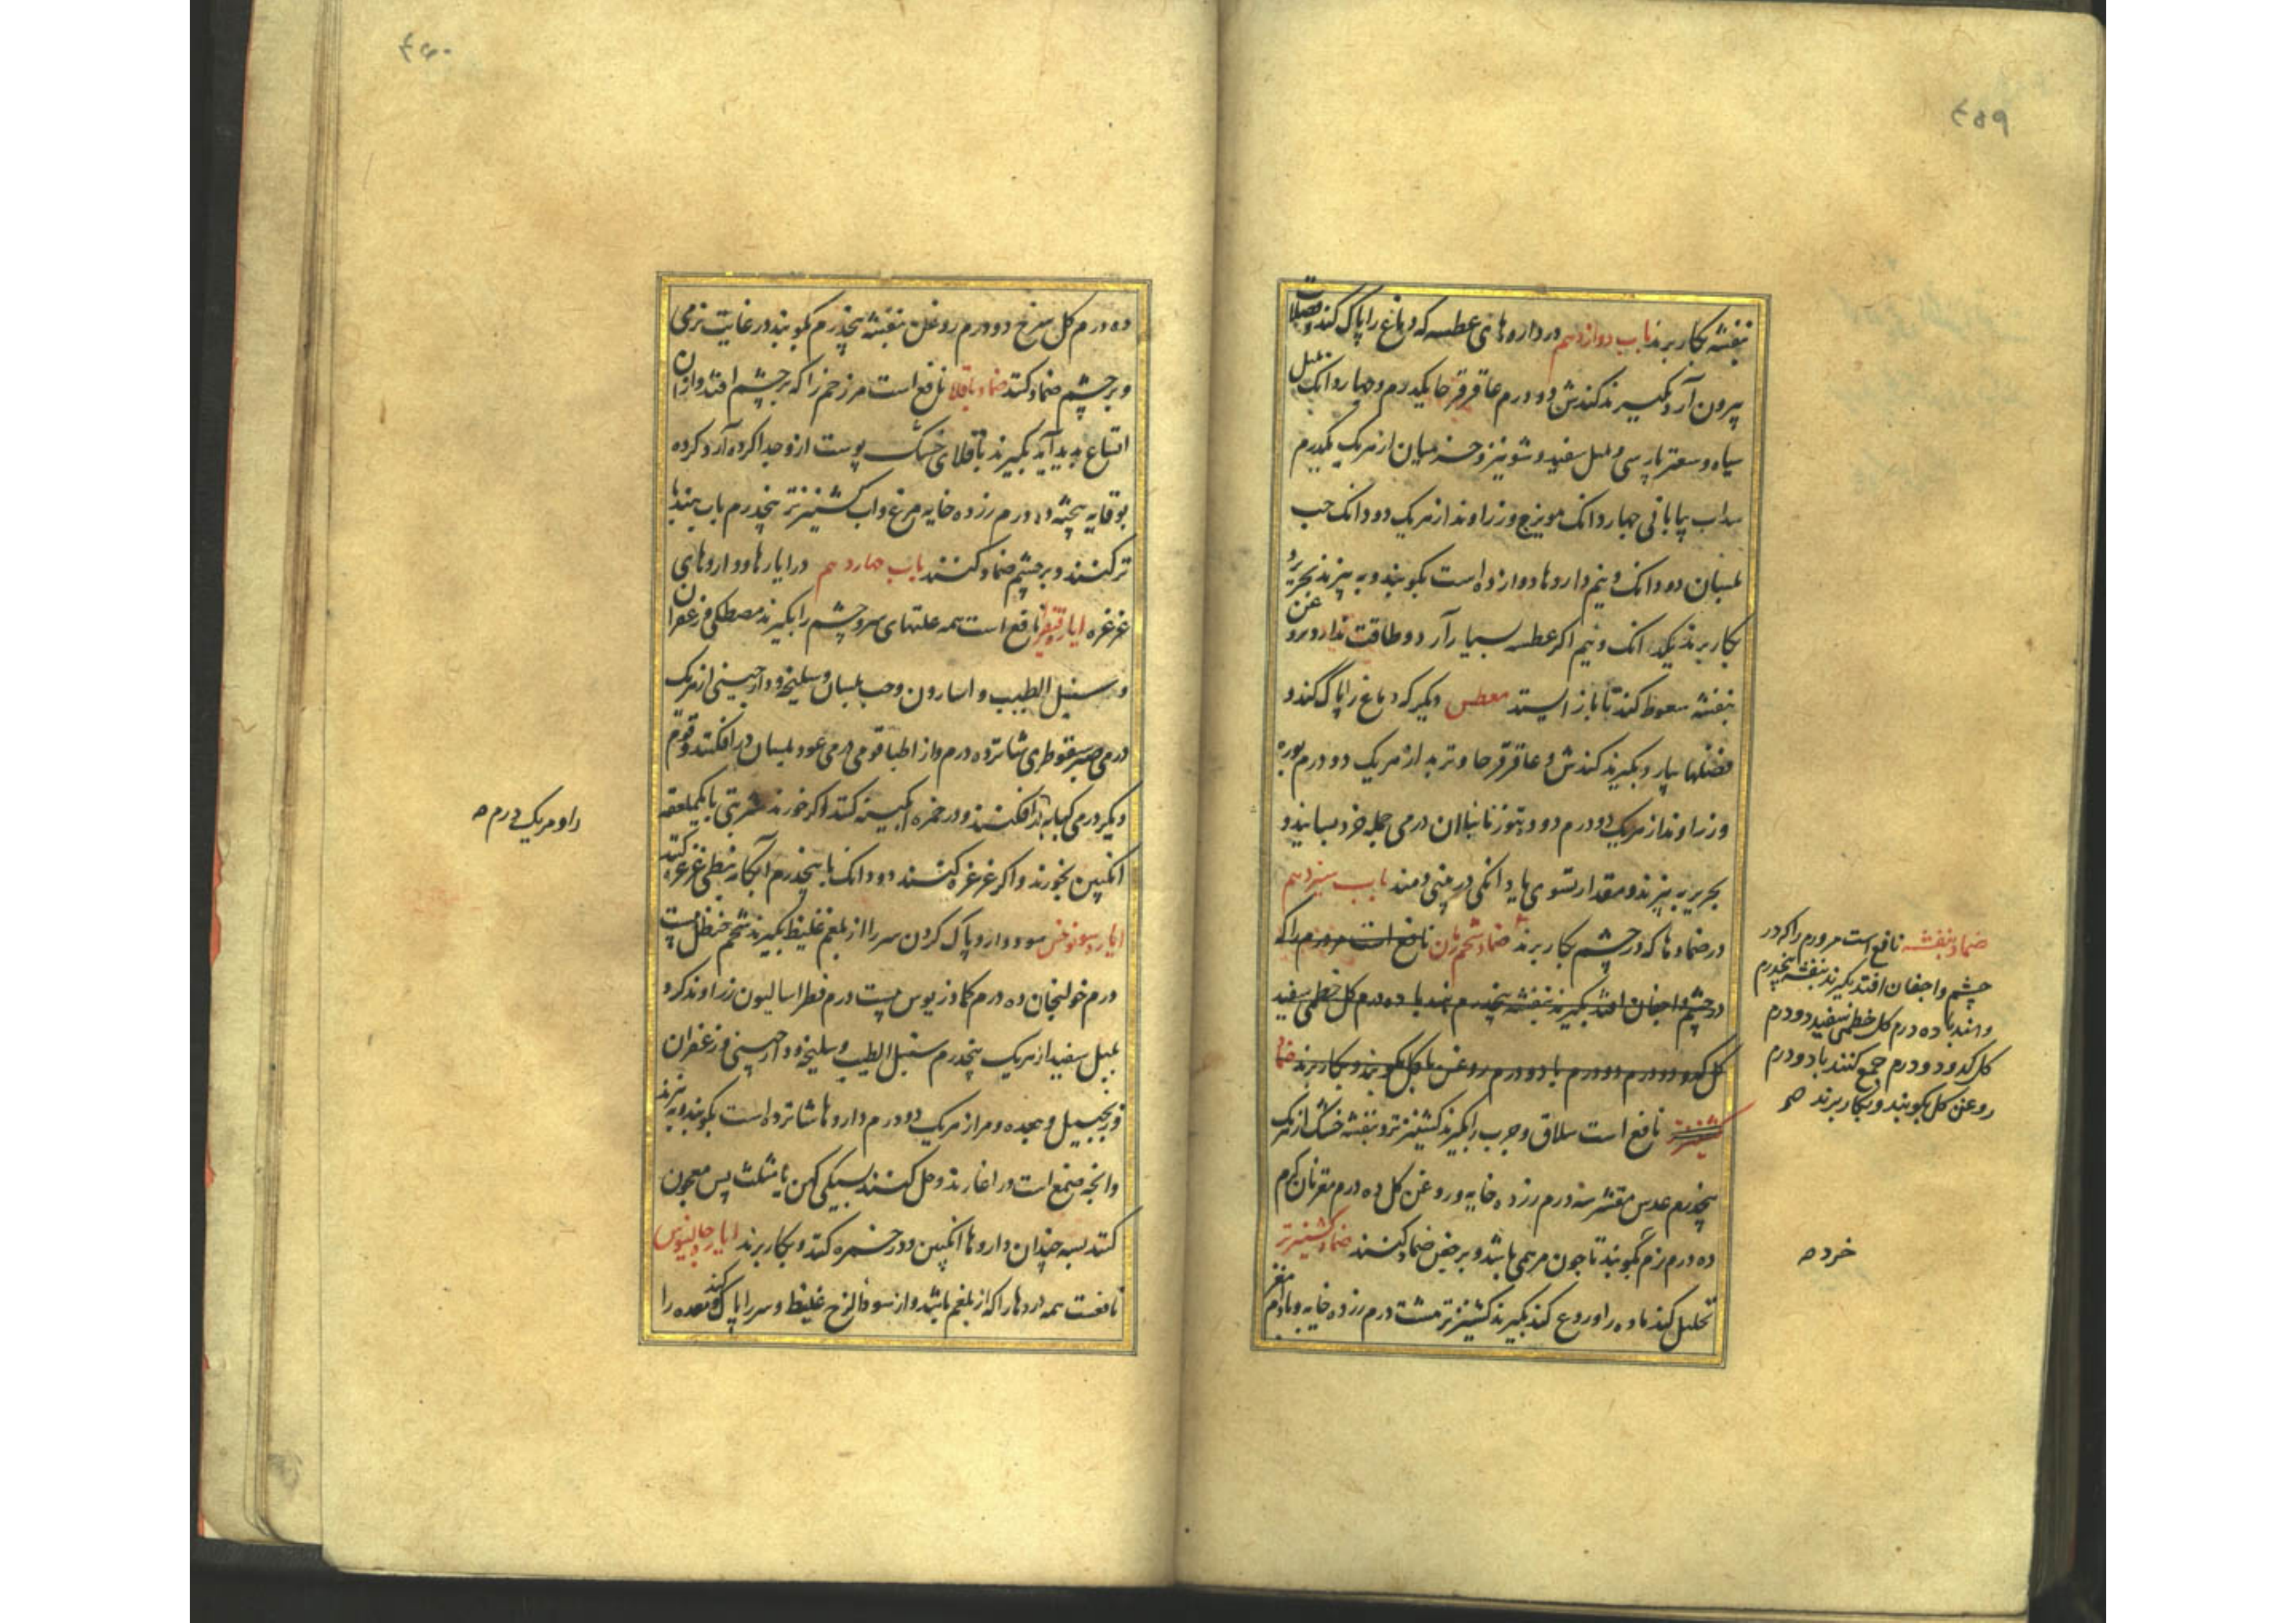 ۴۵۹
بنفشه بکار برند باب دوازدهم در داروهای عطسه که دماغ را پاک کند و فضلات
بیرون آرد بگیرند کندش دو درم عاقرقرحا یکدرم و چهار دانک پلپل
سیاه و سعتر پارسی و پلپل سفید و شونیز و جندبیان از هر یک یکدرم
سداب بیابانی چهار دانک مویزج و زراوند از هر یک دو دانک حب
بلسان دو دانک و نیم داروها دوازده است بکوبند و به بیزند بحریر و
بکار برند یکدانک و نیم اکر عطسه بسیار آرد و طاقت ندارد بروغن
بنفشه سعوط کند تا باز ایستد معطس دیکر که دماغ را پاک کند و
فضلها بیارد بگیرند کندش و عاقرقرحا و تربد از هر یک دو درم بوره
و زراوند از هر یک دو درم درمی جمله خرد بسایند و
بحریر به بیزند و مقدار تسوی یا دانکی در بینی دمند باب سیزدهم
در ضمادها که در چشم بکار برند ضماد نافع است مر ورم را که
در چشم و اجفان افتد بگیرند بنفشه پنجدرم ده درم کل خطمی سفید
دو درم با دو درم روغن کل بکوبند و بکار برند ضماد
کشنیز تر نافع است سلاق و جرب را بگیرند کشنیز تر و بنفشه خشک از هر یک
پنجدرم عدس مقشر سه درم زرده خایه و روغن کل ده درم مغز نان کرم
ده درم نرم بکوبند تا چون مرهمی باشد و بر جفن ضماد کنند ضماد کشنیز تر
تحلیل کند ماده را و ردع کند بگیرند کشنیز تر هشت درم زرده خایه و بادام مغز
ضماد بنفشه نافع است مر ورم را که در
چشم و اجفان افتد بگیرند بنفشه پنجدرم
ده درم کل خطمی سفید دو درم
دو درم جمع کنند با دو درم
روغن کل بکوبند و بکار برند
خرد
۴۶۰
ده درم کل سرخ دو درم روغن بنفشه پنجدرم بکوبند در غایت نرمی
و بر چشم ضماد کنند ضماد باقلا نافع است مر زخم را که بر چشم افتد و از آن
اتساع پدید آید بگیرند باقلای خشک پوست ازو جدا کرده آرد کرده
درم زرده خایه مرغ و آب کشنیز تر پنجدرم باب
تر کنند و بر چشم ضماد کنند باب چهاردهم در ایارها و داروهای
غرغره ایارج فیقرا نافع است همه علتهای سر و چشم را بگیرند مصطکی و زعفران
و سنبل الطیب و اسارون و حب بلسان و سلیخه و دارچینی از هر یک
درمی صبر سقوطری شانزده درم و از اطبا قومی درمی عود بلسان درافکنند و قوم
دیکر درمی کبابه درافکنند و در خمره آبکینه کنند اکر خورند شربتی با یکملعقه
انکبین بخورند و اکر غرغره کنند دو دانک با پنجدرم آبکامه نبطی غرغره کنند
ایارج سود دارد پاک کردن سر را از بلغم غلیظ بگیرند شحم حنظل بیست
درم خولنجان ده درم کمادریوس بیست درم فطراسالیون زراوند کرد
پلپل سفید از هر یک پنجدرم سنبل الطیب و سلیخه و دارچینی و زعفران
و زنجبیل و جعده و مر از هر یک دو درم داروها شانزده است بکوبند و به بیزند
و آنچه صمغ است ور اغارند و حل کنند بسیکی کهن یا مثلث پس معجون
کنند بسه چندان داروها انکبین و در خمره کنند و بکار برند ایارج جالینوس
نافعست همه دردها را که از بلغم باشد و از سودا لزج غلیظ و سر را پاک کند و معده را
را و هر یک درم